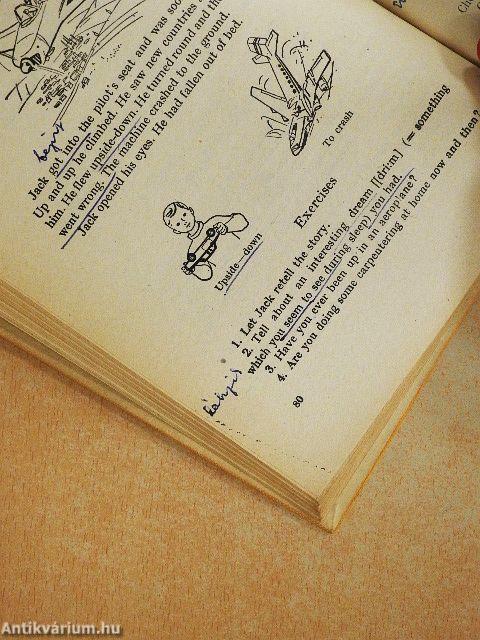 Jack got into the pilot's seat and was soo
Up and up he climbed. He saw new countries
him. He flew upside-down. He turned round and th
went wrong. The machine crashed to the ground.
Jack opened his eyes. He had fallen out of bed.
To crash
Upside-down
Exercises
1. Let Jack retell the story.
2. Tell about an interesting dream [dri:m] (= something
which you seem to see during sleep) you had.
3. Have you ever been up in an aeroplane?
4. Are you doing some carpentering at home now and then?
80
Antikvárium.hu